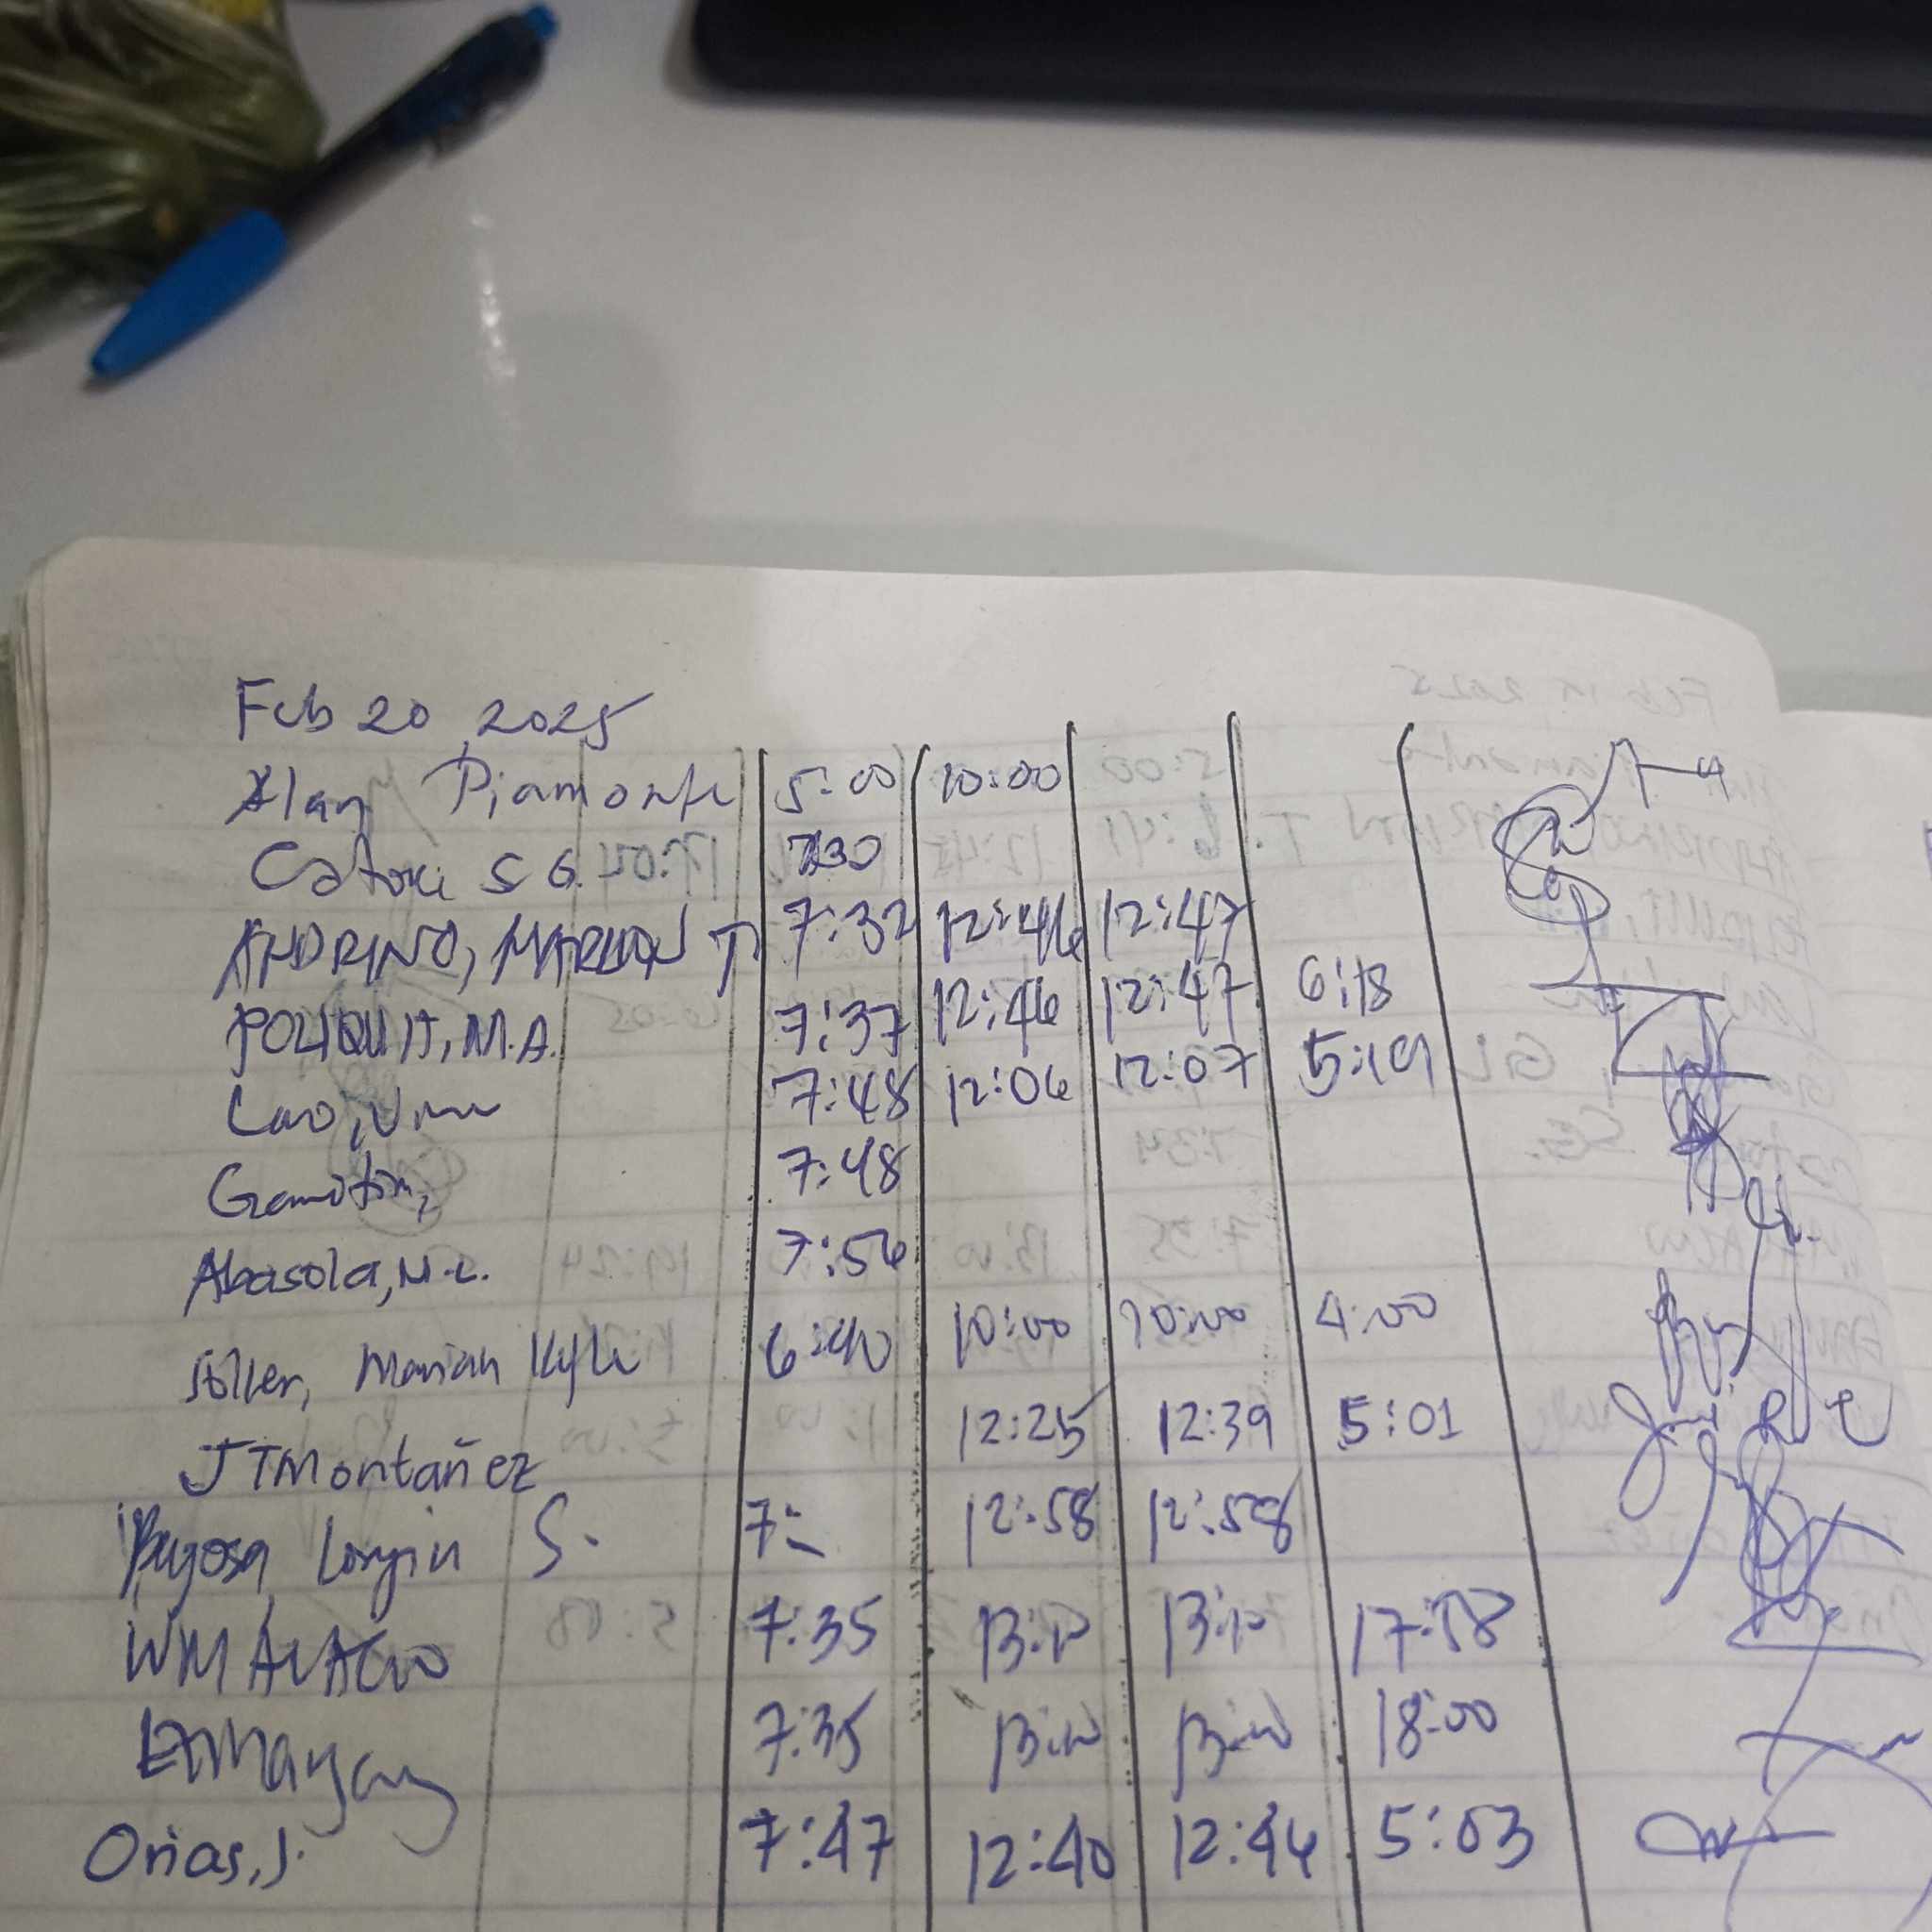 Feb 20, 2025
Alan Piamonte 5:00 10:00
Catoru S G. 7:30
ANDRINO, MARLON T 7:32 12:46 12:47
POLIQUIT, M.A. 7:37 12:46 12:47 6:18
Lao, 7:48 12:06 12:07 5:19
Gamotin, 7:48
Abasola, N.C. 7:56
Soller, Marian Kyle 6:40 10:00 10:00 4:00
JTMontañez 12:25 12:39 5:01
Payosa, Longin S. 7: 12:58 12:58
WM 7:35 13:10 13:10 17:58
7:35 18:00
Orias, J. 7:47 12:40 12:44 5:03